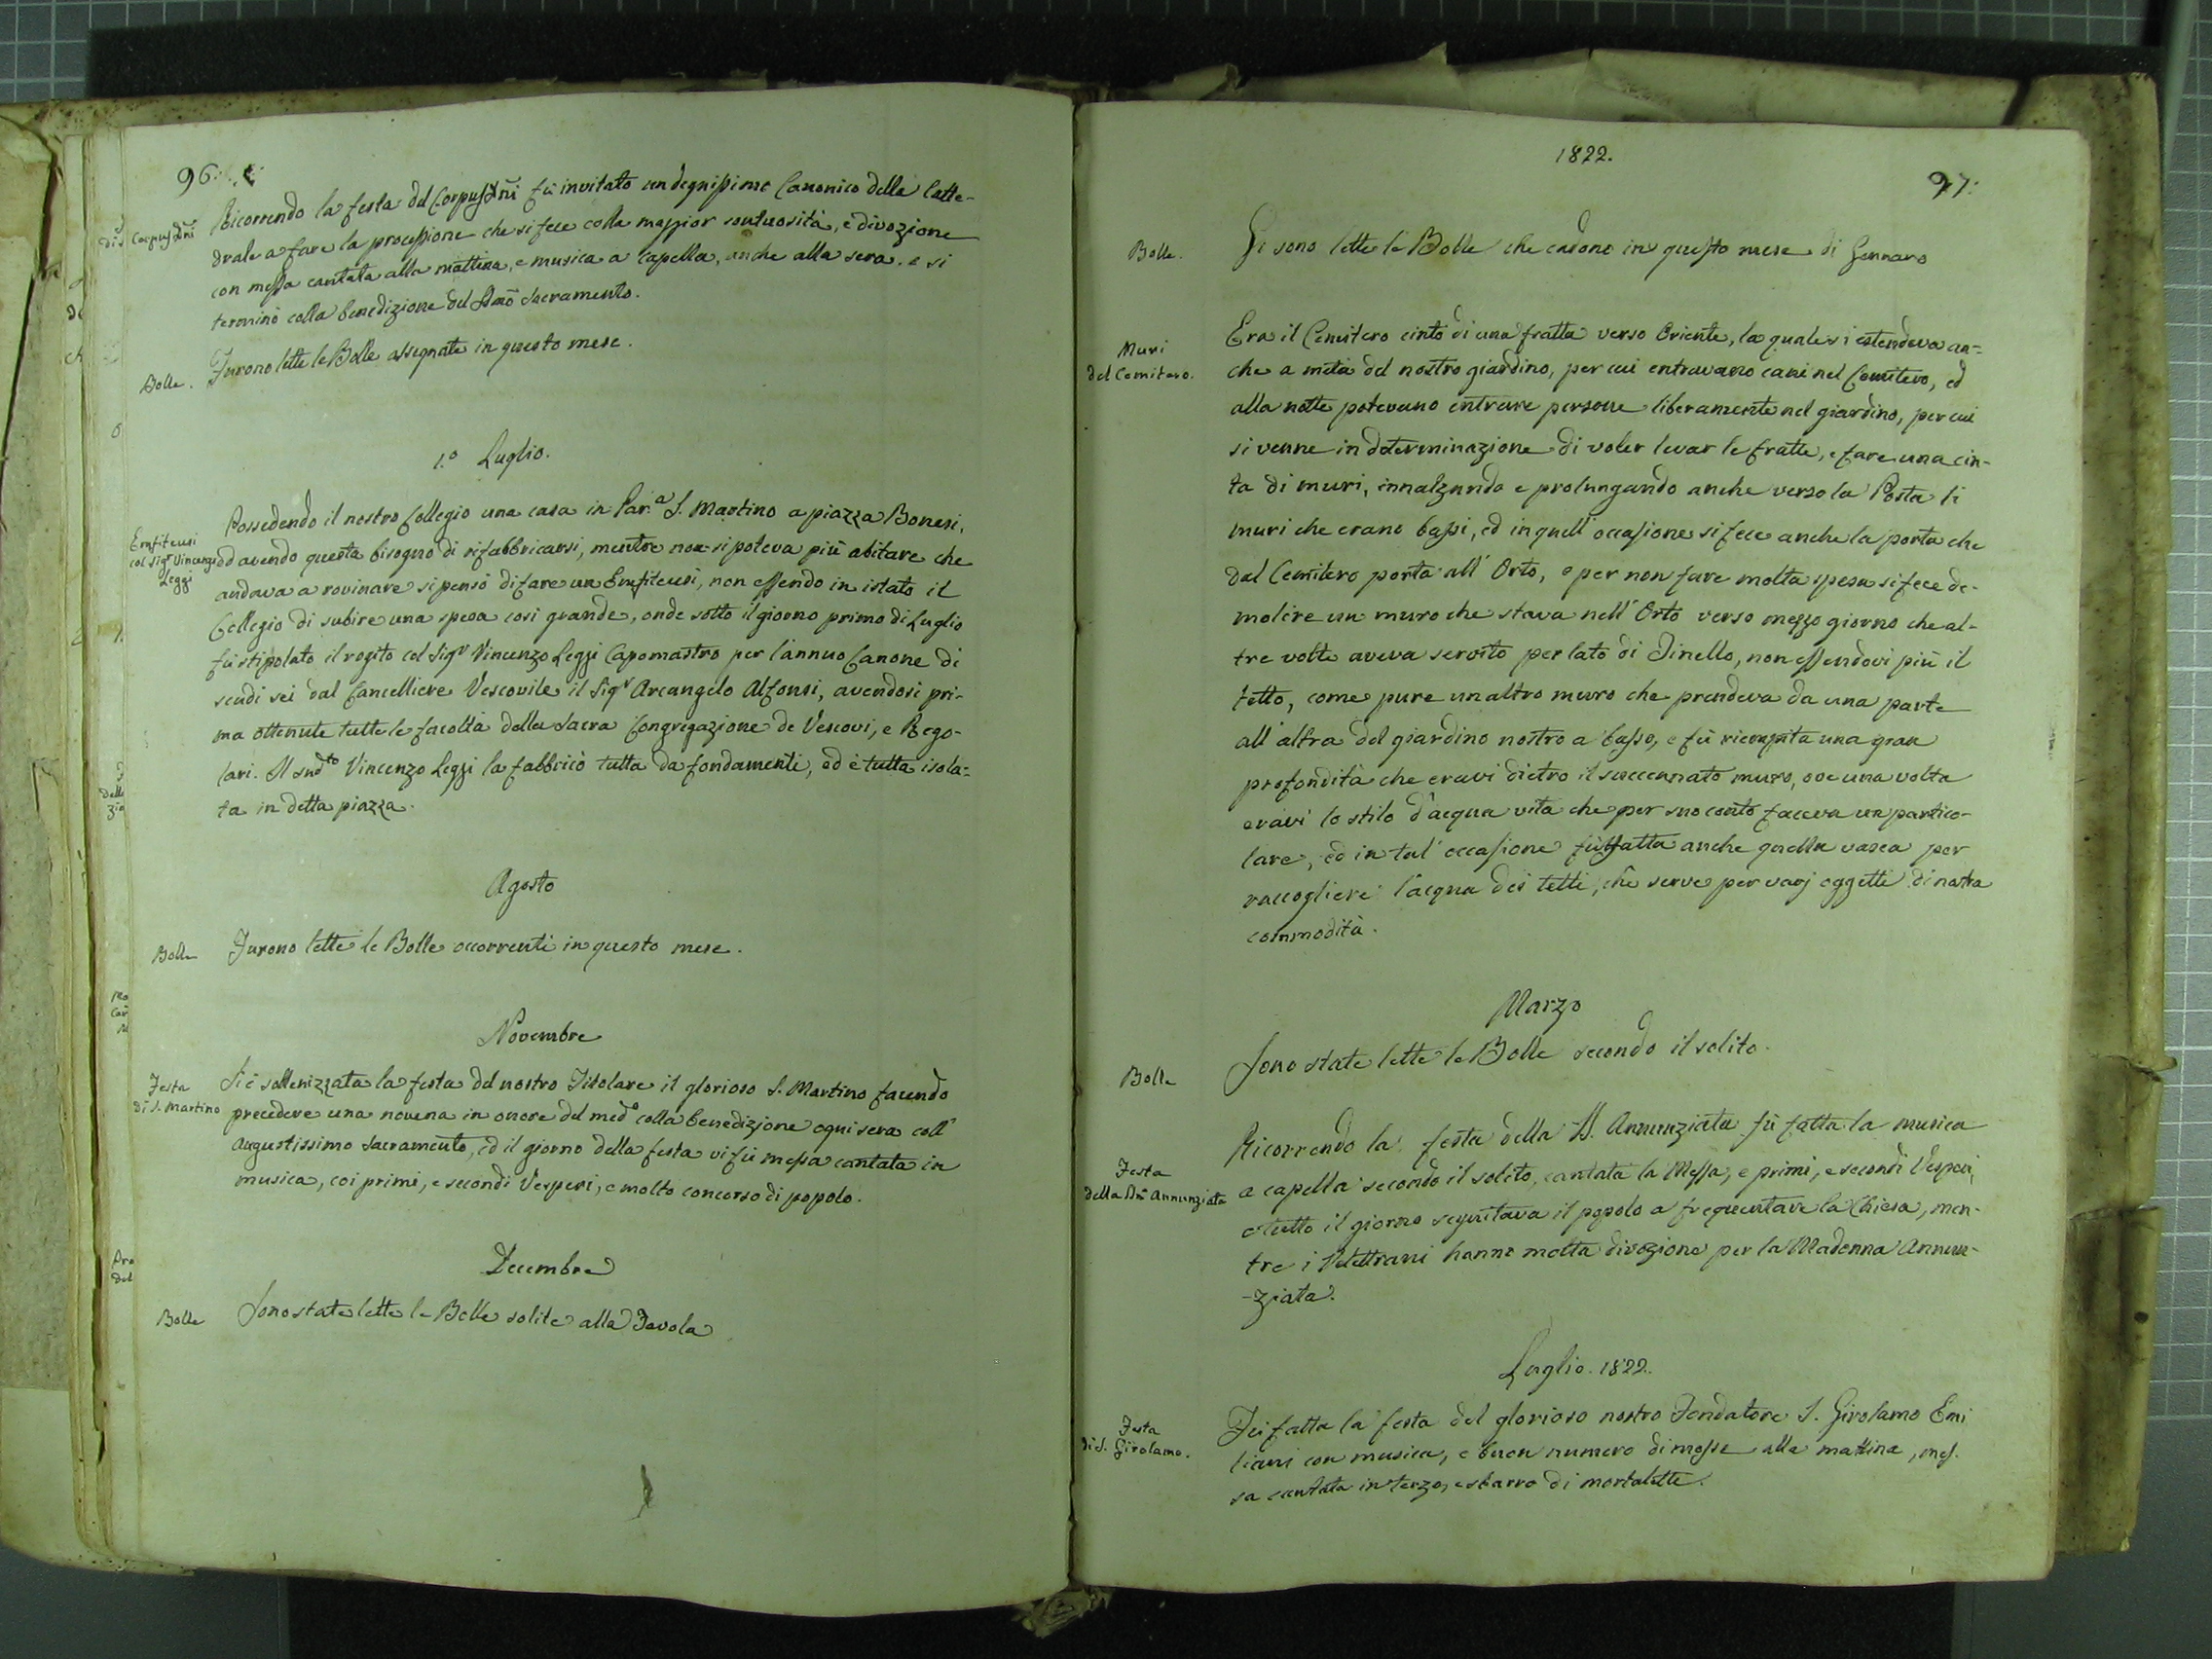 96.
Corpus Dñi
Ricorrendo la festa del Corpus Dñi fù invitato un degnissimo Canonico della Catte-
drale a fare la processione che si fece colla maggior sontuosità, e divozione
con messa cantata alla mattina, e musica a Capella, anche alla sera. e si
terminò colla benedizione del Smõ Sacramento.
Bolle.
Furono lette le Bolle assegnate in questo mese.
1.º Luglio.
Enfiteusi
col Sigr Vincenzo
Leggi
Possedendo il nostro Collegio una casa in Par.a S. Martino a piazza Bonesi,
ed avendo questa bisogno di rifabbricarsi, mentre non si poteva più abitare che
andava a rovinare si pensò di fare un Enfiteusi, non essendo in istato il
Collegio di subire una spesa così grande, onde sotto il giorno primo di Luglio
fù stipolato il rogito col Sigr Vincenzo Leggi Capomastro per l'annuo Canone di
scudi sei dal Cancelliere Vescovile il Sigr Arcangelo Alfonsi, avendosi pri-
ma ottenute tutte le facoltà della Sacra Congregazione de Vescovi, e Rego-
lari. Il sudto Vincenzo Leggi la fabbricò tutta da fondamenti, ed è tutta isola-
ta in detta piazza.
Agosto
Bolle
Furono lette le Bolle occorrenti in questo mese.
Novembre
Festa
di S. Martino
Si è sollenizzata la festa del nostro Titolare il glorioso S. Martino facendo
precedere una novena in onore del medº colla benedizione ogni sera coll'
Augustissimo Sacramento, ed il giorno della festa vi fù messa cantata in
musica, coi primi, e secondi Vesperi, e molto concorso di popolo.
Decembre
Bolle
Sono state lette le Bolle solite alla Tavola
1822.
97.
Bolle.
Si sono lette le Bolle che cadono in questo mese di Gennaro
Muri
del Cemitero.
Era il Cemitero cinto di una fratta verso Oriente, la quale si estendeva an-
che a metà del nostro giardino, per cui entravano cani nel Cemitero, ed
alla notte potevano entrare persone liberamente nel giardino, per cui
si venne in determinazione di voler levar le fratte, e fare una cin-
ta di muri, innalzando e prolungando anche verso la Porta li
muri che erano bassi, ed in quell' occasione si fece anche la porta che
dal Cemitero porta all' Orto, e per non fare molta spesa si fece de-
molire un muro che stava nell' Orto verso mezzo giorno che al-
tre volte aveva servito per lato di Tinello, non essendovi più il
tetto, come pure un altro muro che prendeva da una parte
all' altra del giardino nostro a basso, e fù riempita una gran
profondità che eravi dietro il suaccennato muro, ove una volta
eravi lo stilo d'acqua vita che per suo conto faceva un partico-
lare, ed in tal' occasione fù fatta anche quella vasca per
raccogliere l'acqua dei tetti, che serve per varj oggetti di nostra
commodità.
Marzo
Bolle
Sono state lette le Bolle secondo il solito.
Festa
della Sma Annunziata
Ricorrendo la festa della SS. Annunziata fù fatta la musica
a capella secondo il solito, cantata la Messa, e primi, e secondi Vesperi,
e tutto il giorno seguitava il popolo a frequentare la Chiesa, men-
tre i Velettrani hanno molta divozione per la Madonna Annun-
-ziata.
Luglio. 1822.
Festa
di S. Girolamo.
Fù fatta la festa del glorioso nostro Fondatore S. Girolamo Emi
liani con musica, e buon numero di messe alla mattina, mes-
sa cantata in terzo, e sbarro di mortaletti.